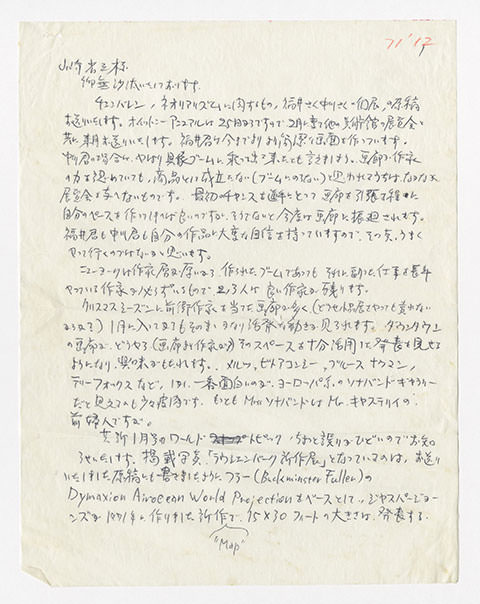 71'12
山崎省三様
御無沙汰いたしております。
チェンバレン、ネオリアリズムに関するもの、福井さく中川さく一個展、の原稿
お送りいたします。ホイットニーアニュアルは25日からですので2月に 他の美術館の展覧会と
共に来月お送りいたします。福井君は今までより 画面を作っています。
中川君の場合は、やはり具象ブームに乗って出て来たとも言えましょう。画廊で作家
の力を認めていても、商品として成立たない(ブームにのらない)と思われてるうちはなかなか
展覧会を 。最初のチャンスを えて画廊を引張る程に
自分のペースを作りければ良いのですが、そうでないと今度は画廊に振廻されます。
福井君も中川君も自分の作品に大変な自信を持っていますので、その点、うまく
やって行くのではないかと思います。
ニューヨークは作家層が厚いから、作られたブームであっても それに 仕事を長年
やっている作家が必らずいるもので 2、3人は良い作家が残ります。
クリスマスシーズンに前衛作家を当てた画廊が多く、(どうせ個展をやっても売れない
からなので) 1月に入ってからもそのまゝかなり活発な動きが見られます。ダウンタウン
の画廊が、どうやら(画廊も作家が)そのスペースを十分活用した発表を見せる
ようになり、興味がもたれます。メルツ、ビトアコンシー、ブルース ナウマン、
テリーフォックスなど。しかし一番面白いのが、ヨーロッパ系のソナバンドギャラリー
だと思えるのも少々皮肉です。もっとも Mrs ソナバンドは Mr. キャステリイの
前婦人ですが。
芸新1月号のワールド トピック、ちょっと誤りがひどいのでお知
らせいたします。掲載写真、「ラウシェンバーグ新作展」となっているのは、お送り
いたしました原稿にも書きましたように フラー (Buckminster Fuller)の
Dymaxion Airocean World Projectionをベースとして、ジャスパージョー
ンズが1971年に作りました新作で、15×30フィートの大きさは、発表する。
"Map"